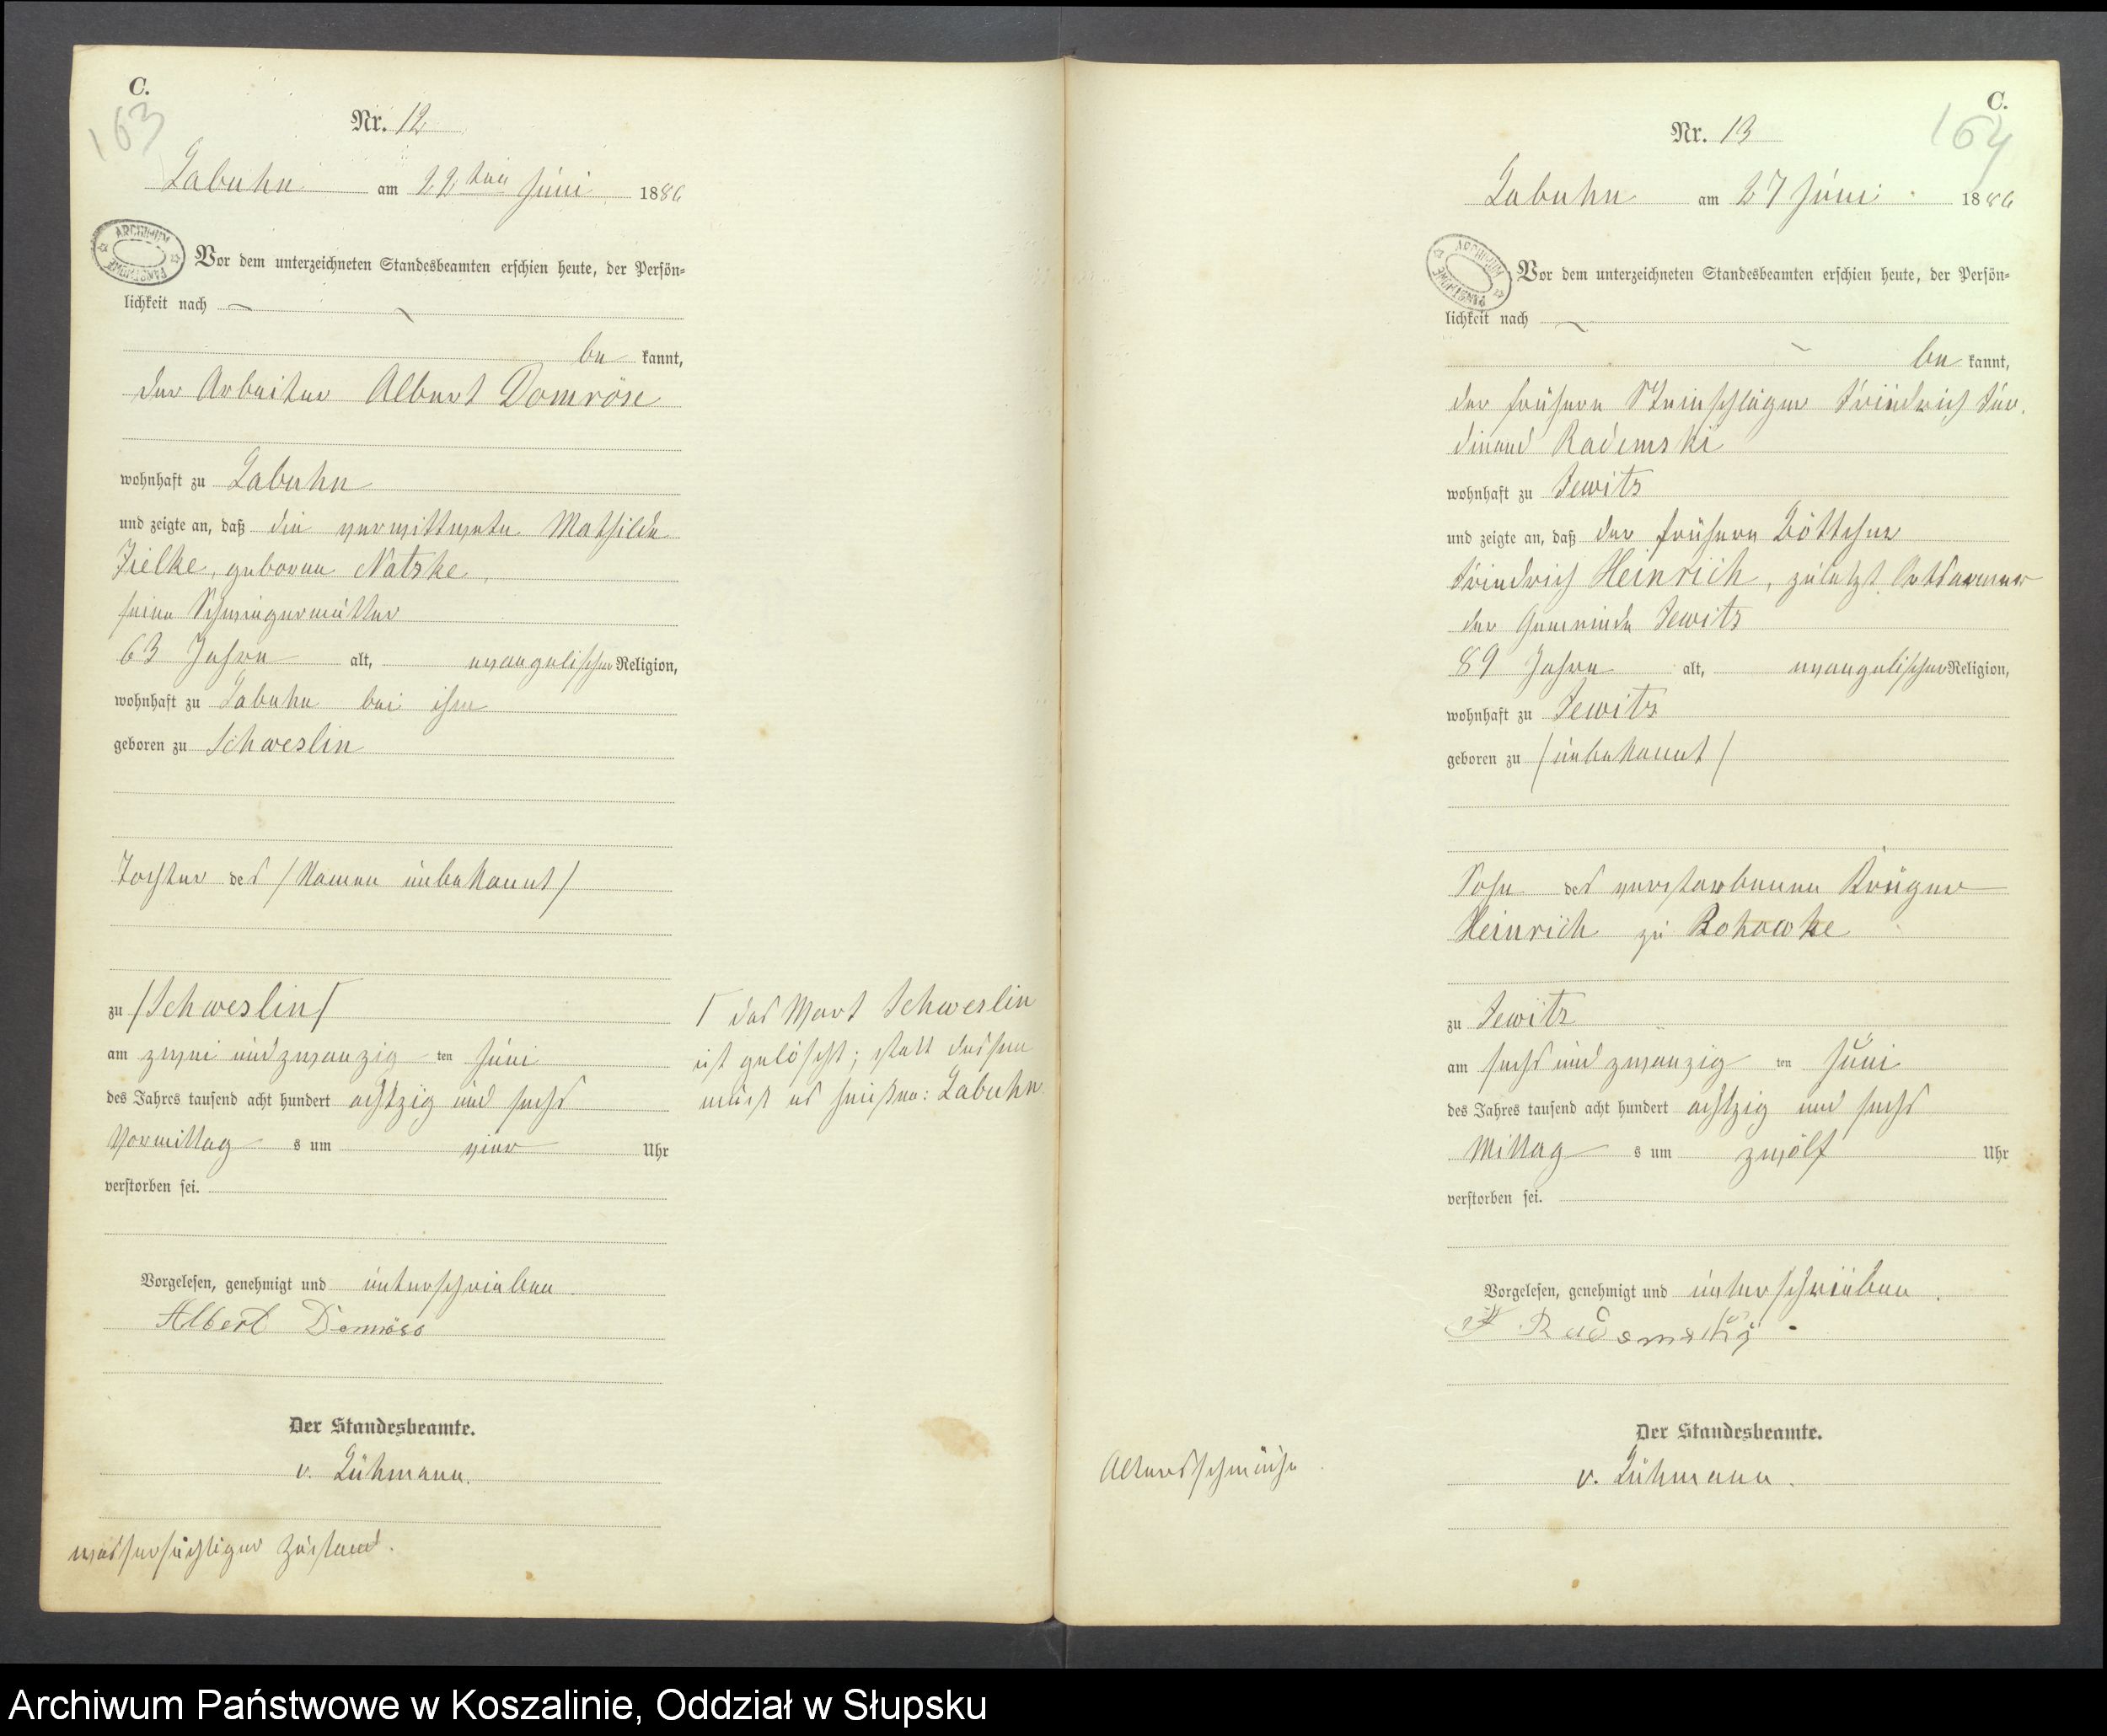 C.
163
Nr. 12
Labuhn am 22ten Juni 1886
ARCHIWUM PAŃSTWOWE
Vor dem unterzeichneten Standesbeamten erschien heute, der Persön-
lichkeit nach
be kannt,
der Arbeiter Albert Domröse
wohnhaft zu Labuhn
und zeigte an, daß die verwittwete Mathilde
Zielke, geborne Natzke,
seine Schwiegermutter
63 Jahre alt, evangelischer Religion,
wohnhaft zu Labuhn bei ihm
geboren zu Schweslin
Tochter des /Namen unbekannt/
zu /Schweslin/
am zwei und zwanzig ten Juni
des Jahres tausend acht hundert achtzig und sechs
Vormittag s um vier Uhr
verstorben sei.
Vorgelesen, genehmigt und unterschrieben.
Albert Domröse
Der Standesbeamte.
v. Lühmann.
wassersüchtiger Zustand.
das Wort Schweslin
ist gelöscht; statt dessen
muß es heißen: Labuhn
C.
164
Nr. 13
Labuhn am 27 Juni 1886
ARCHIWUM PAŃSTWOWE
Vor dem unterzeichneten Standesbeamten erschien heute, der Persön-
lichkeit nach
be kannt,
der frühere Steinschläger Friedrich Fer-
dinand Rademski
wohnhaft zu Jewitz
und zeigte an, daß der frühere Böttcher
Friedrich Heinrich, zuletzt Ortsarmer
der Gemeinde Jewitz
89 Jahre alt, evangelischer Religion,
wohnhaft zu Jewitz
geboren zu /unbekannt/
Sohn des verstorbenen Krüger
Heinrich zu
zu Jewitz
am sechs und zwanzig ten Juni
des Jahres tausend acht hundert achtzig und sechs
Mittag s um zwölf Uhr
verstorben sei.
Vorgelesen, genehmigt und unterschrieben.
Der Standesbeamte.
v. Lühmann.
Altersschwäche.
Archiwum Państwowe w Koszalinie, Oddział w Słupsku